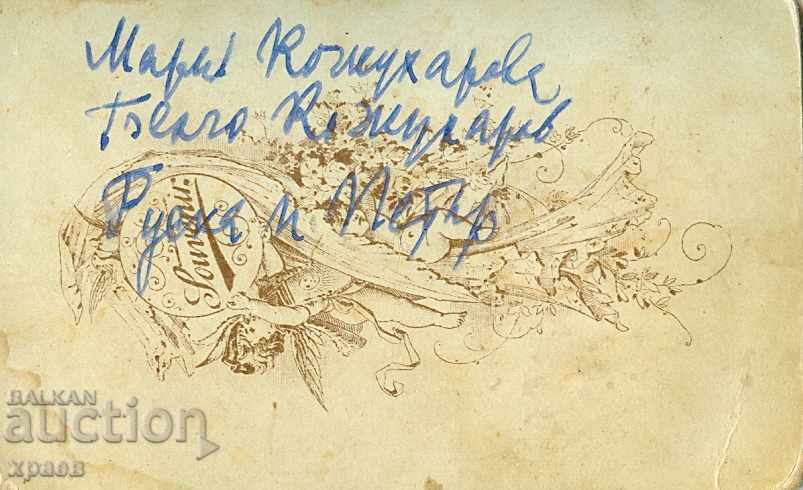 Мария Кожухарова
Белчо Кожухаров
Руска и Петър
Souvenir.
BALKAN
auction
храов